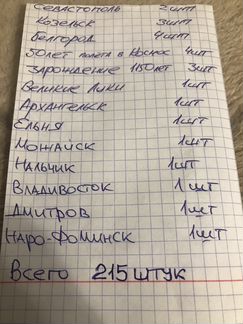 Севастополь 2шт
Козельск 3шт
Белгород 4шт
50лет полета в Космос 4шт
Зарождение 1150лет 3шт
Великие Луки 1шт
Архангельск 1шт
Ельня 1шт
Можайск 1шт
Нальчик 1шт
Владивосток 1шт
Дмитров 1шт
Наро-Фоминск 1шт
Всего 215 штук